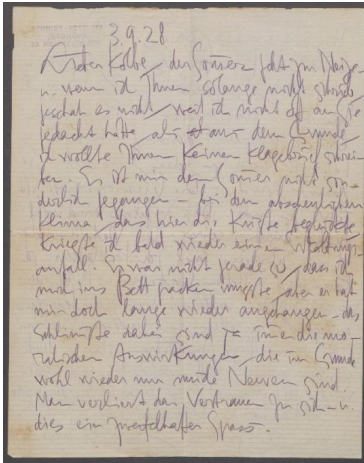 3.9.28
Lieber Kolbe, der Sommer geht zur Neige
u. wenn ich Ihnen solange nicht schrieb
geschah es nicht, weil ich nicht oft an Sie
gedacht hätte, als aus dem Grunde
ich wollte Ihnen keinen Klagebrief schrei-
ben. Es ist mir den Sommer nicht son-
derlich gegangen – bei dem abscheulichen
Klima, das hier die Küste beglückte
kriegte ich bald wieder einen
anfall. Es war nicht gerade so, dass ich
mich ins Bett packen musste, aber er hat
mir doch lange wieder angehangen – das
schlimmste dabei sind ja immer die mo-
ralischen Auswirkungen, die im Grunde
wohl wieder nur müde Nerven sind.
Man verliert das Vertrauen zu sich – u.
dies ein zweifelhafter Spass.